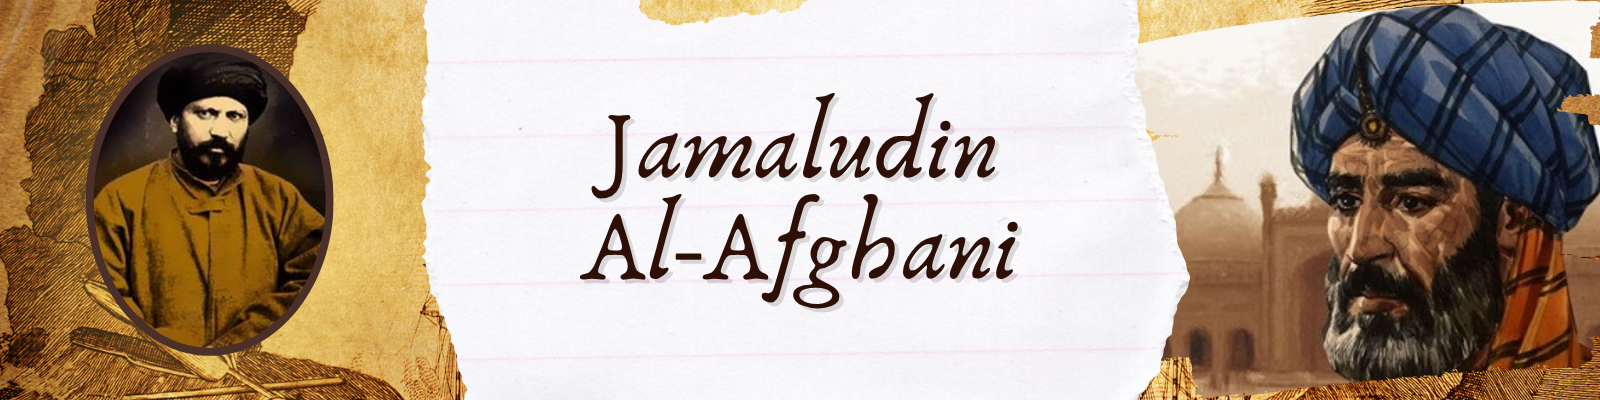 Jamaludin
Al-Afghani